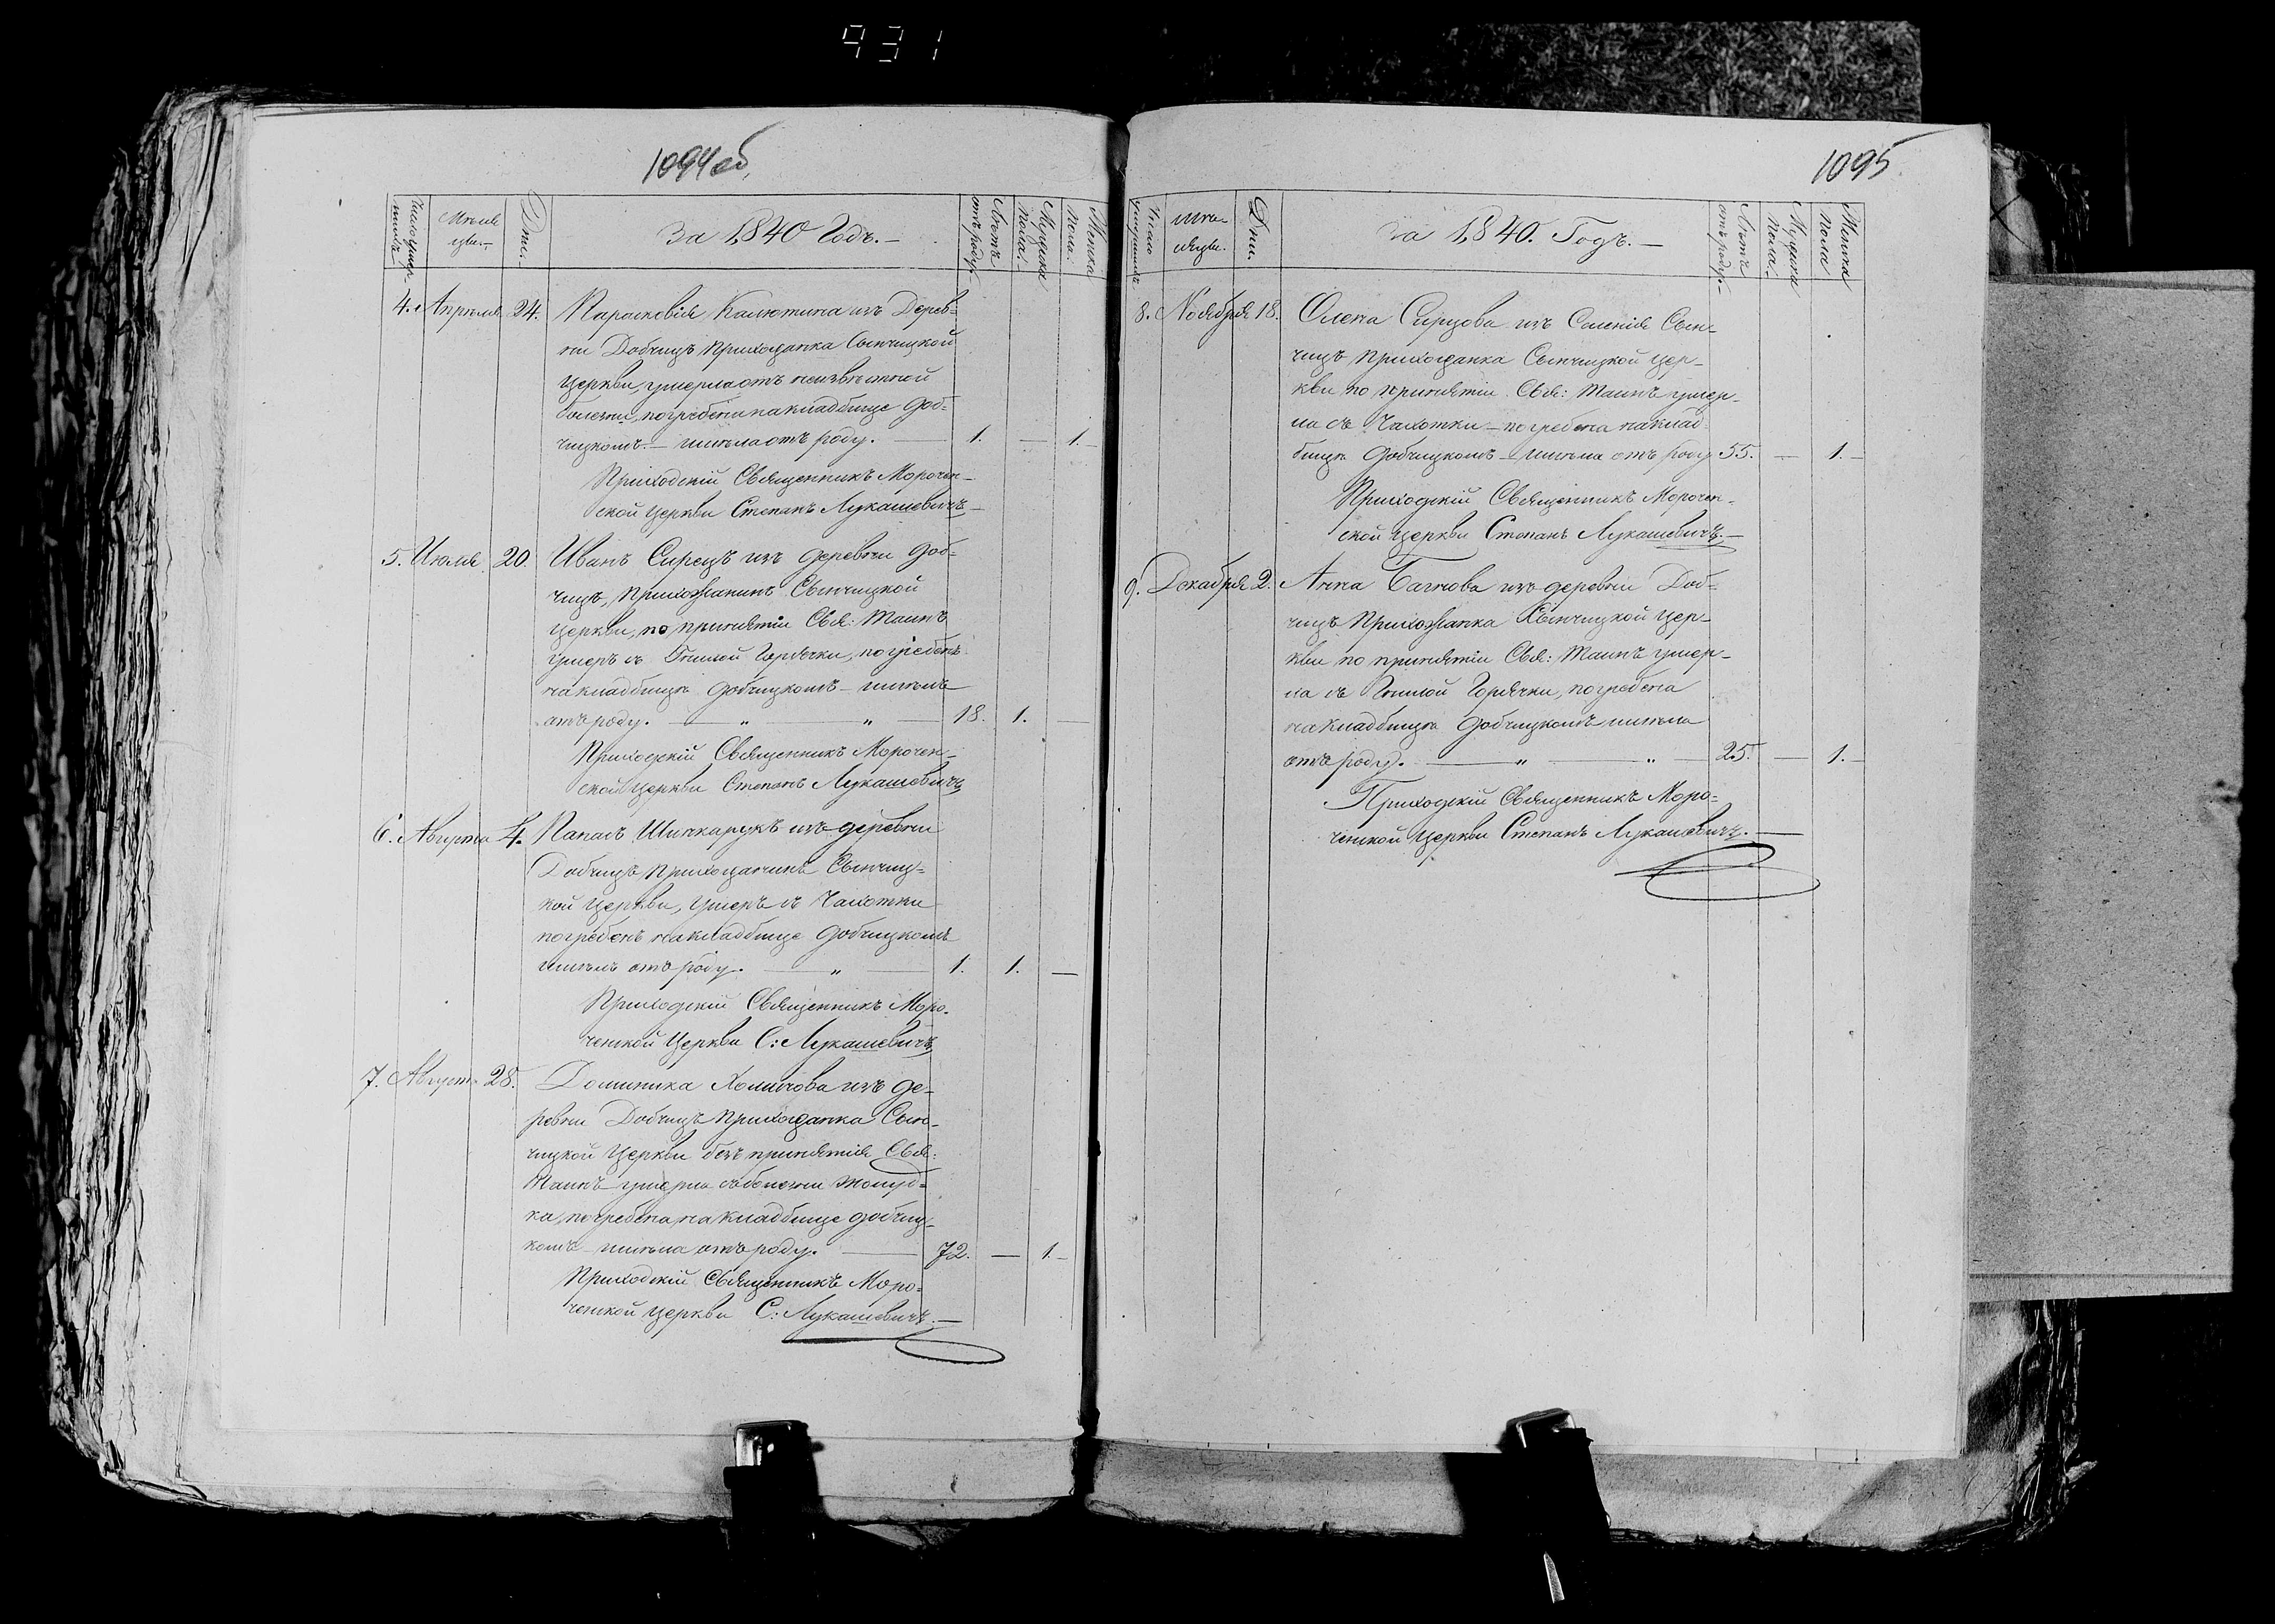 931
1094 об.
Число умер-
шихъ
Мѣся-
цы.
Дни.
За 1840 Годъ.
Лѣтъ
отъ роду.
Мужска
пола.
Женска
пола.
4. Апрѣля 24. Парасковія Калютина изъ Дерев-
ни Добчицъ прихожанка Сынчицкой
Церкви, умерла отъ неизвѣстной
болезни, погребена на кладбище доб-
чицкомъ. имѣла отъ роду. 1. — 1.
Приходскій Священникъ Морочен-
ской Церкви Степанъ Лукашевичъ
5. Июля 20. Иванъ Сирецъ изъ деревни доб-
чицъ, прихожанинъ Сынчицкой
Церкви, по принятіи Свя: Таинъ
умеръ съ Гнилой Горячки, погребенъ
на кладбищѣ добчицкомъ имѣлъ
отъ роду. — „ — „ — 18. 1. —
Приходскій Священникъ Морочен-
ской Церкви Степанъ Лукашевичъ
6. Августа 4. Панасъ Шинкарукъ изъ деревни
Добчицъ прихожанинъ Сынчиц-
кой Церкви, умеръ съ Чахотки
погребенъ на кладбище добчицкомъ
имѣлъ отъ роду. — „ — 1. 1. —
Приходскій Священникъ Моро-
ченской Церкви С: Лукашевичъ
7. Август 28. Доминика Хомичова изъ де-
ревни Добчицъ прихожанка Сын-
чицкой Церкви безъ принятія Свя:
Таинъ умерла съ болезни желуд-
ка, погребена на кладбище добчиц-
комъ имѣла отъ роду. — 72. — 1.
Приходскій Священникъ Моро-
ченской Церкви С: Лукашевичъ.
1095
Число
умершихъ
Мѣ-
сяцы.
Дни.
За 1840. Годъ.
Лѣтъ
отъ роду.
Мужска
пола.
Женска
пола
8. Ноября 18. Олена Сирцова изъ Селенія Сын-
чицъ прихожанка Сынчицкой Цер-
кви по принятіи Свя: Таинъ умер-
ла съ Чахотки погребена на клад
бищѣ добчицкомъ имѣла отъ роду 55. — 1.
Приходскій Священникъ Морочен-
ской Церкви Степанъ Лукашевичъ.
9. Декабря 2. Анна Багнова изъ деревни Доб-
чицъ Прихожанка Сынчицкой Цер-
кви по принятіи Свя: Таинъ умер-
ла съ Гнилой Горячки, погребена
на кладбищѣ добчицкомъ имѣла
отъ роду. — „ — „ — 25. — 1.
Приходскій Священникъ Моро-
ченской Церкви Степанъ Лукашевичъ.